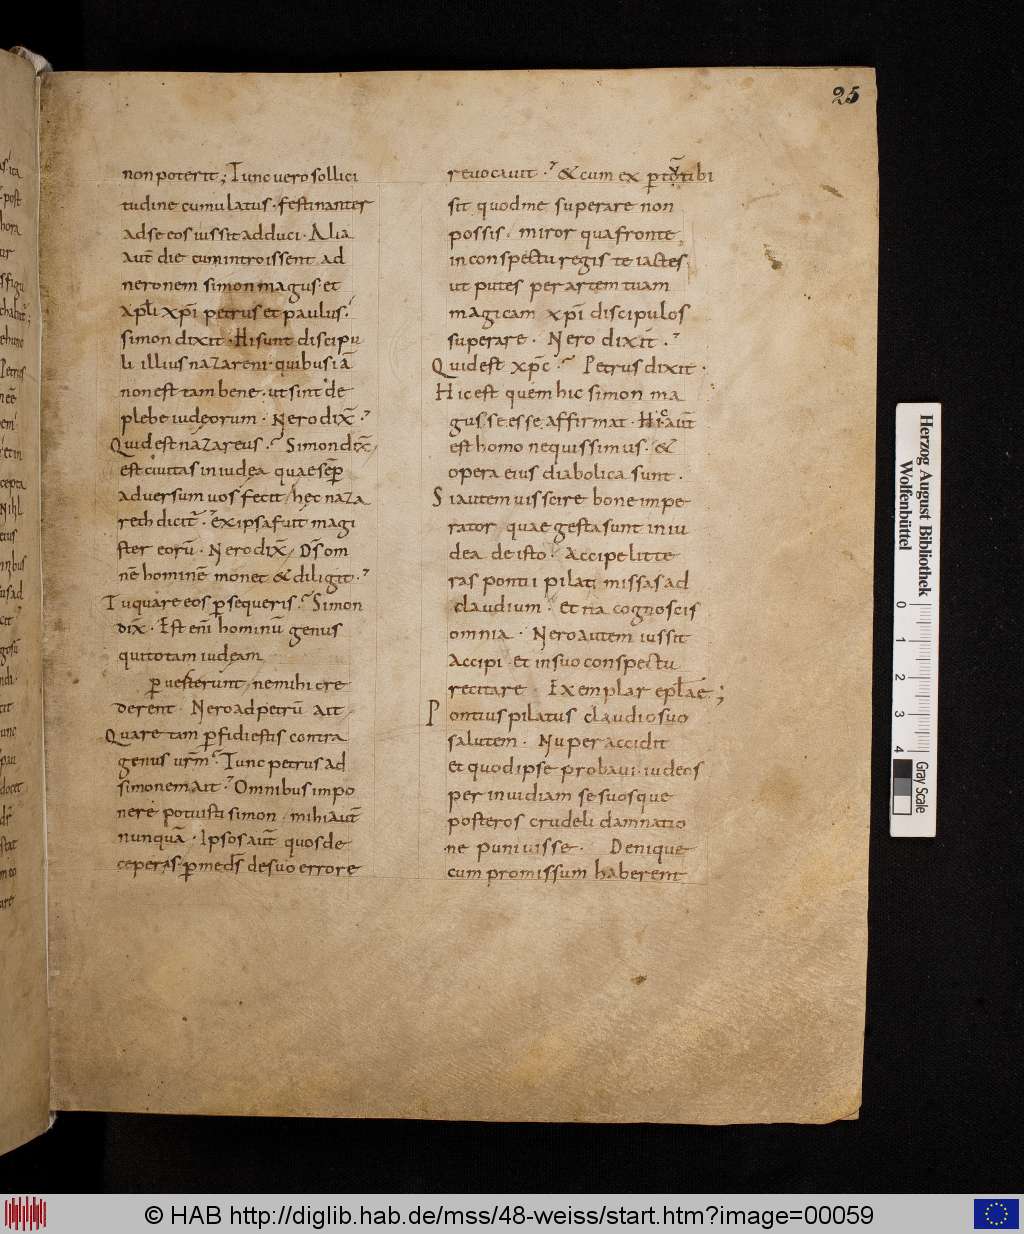 25
non poterit; Tunc vero sollici
tudine cumulatus. festinanter
ad se eos iussit adduci. Alia
aut̄ die cum introissent ad
neronem simon magus. et
apl̄i xp̄i petrus et paulus.
simon dixit. Hi sunt discipu
li illius nazareni. quibus iā
non est tam bene. ut sint de
plebe iudęorum. Nero dix̄.
Quid est nazareus. Simon dix̄
est civitas in iudęa quae sēp
adversum vos fecit. hęc naza
reth dicit̄. ex ipsa fuit magi
ster eorū. Nero dix̄. D̄s om
nē hominē monet & diligit.
Tu quare eos ꝑsequeris. Simon
dix̄. Est eni̅ hominū genus
qui totam iudęam
ꝑ
ne mihi cre
derent. Nero ad petrū ait
Quare tam ꝑfidi estis contra
genus vr̄m. Tunc petrus ad
simonem ait. Omnibus impo
nere potuisti simon. mihi aut̄
nunquā. Ipsos aut̄ quos de
ceperas. ꝑ me d̄s de suo errore
revocavit. & cum ex
tibi
sit quod me superare non
possis. miror qua fronte
in conspectu regis te iactes.
ut putes per artem tuam
magicam xp̄i discipulos
superare. Nero dixit.
Quid est xp̄c. Petrus dixit.
Hic est quem hic simon ma
gus se esse affirmat. Hic aut̄
est homo nequissimus. &
opera eius diabolica sunt.
Si autem vis scire bone impe
rator. quae gesta sunt in iu
dea de isto. Accipe litte
ras pontii pilati missas ad
claudium. et ita cognoscis
omnia. Nero autem iussit
accipi. et in suo conspectu
recitare. Exemplar epl̄ae;
Pontius pilatus claudio suo
salutem. Nuper accidit
et quod ipse probavi. iudeos
per invidiam se suosque
posteros crudeli damnatio
ne punivisse. Denique
cum promissum haberent
Herzog August Bibliothek
Wolfenbüttel
0 1 2 3 4
Gray Scale
© HAB http://diglib.hab.de/mss/48-weiss/start.htm?image=00059